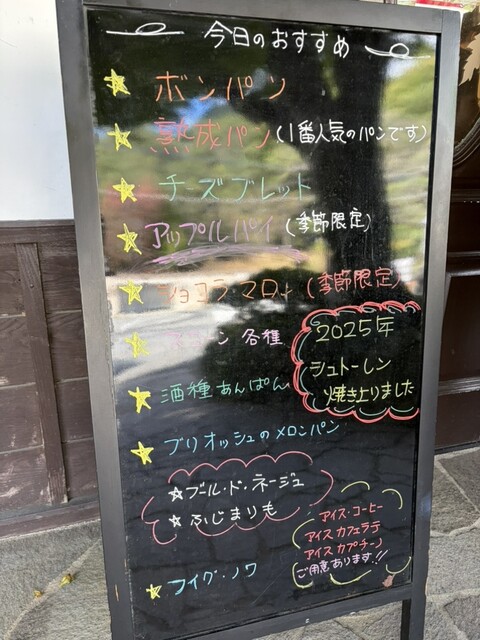 今日のおすすめ
ボンパン
熟成パン(1番人気のパンです)
チーズブレット
アップルパイ (季節限定)
ショコラ・マロン (季節限定)
各種
2025年
シュトーレン
焼き上りました
酒種あんぱん
ブリオッシュのメロンパン
ブール・ド・ネージュ
ふじまりも
アイス・コーヒー
アイスカフェラテ
アイスカプチーノ
ご用意あります!!
フイグ・ノワ